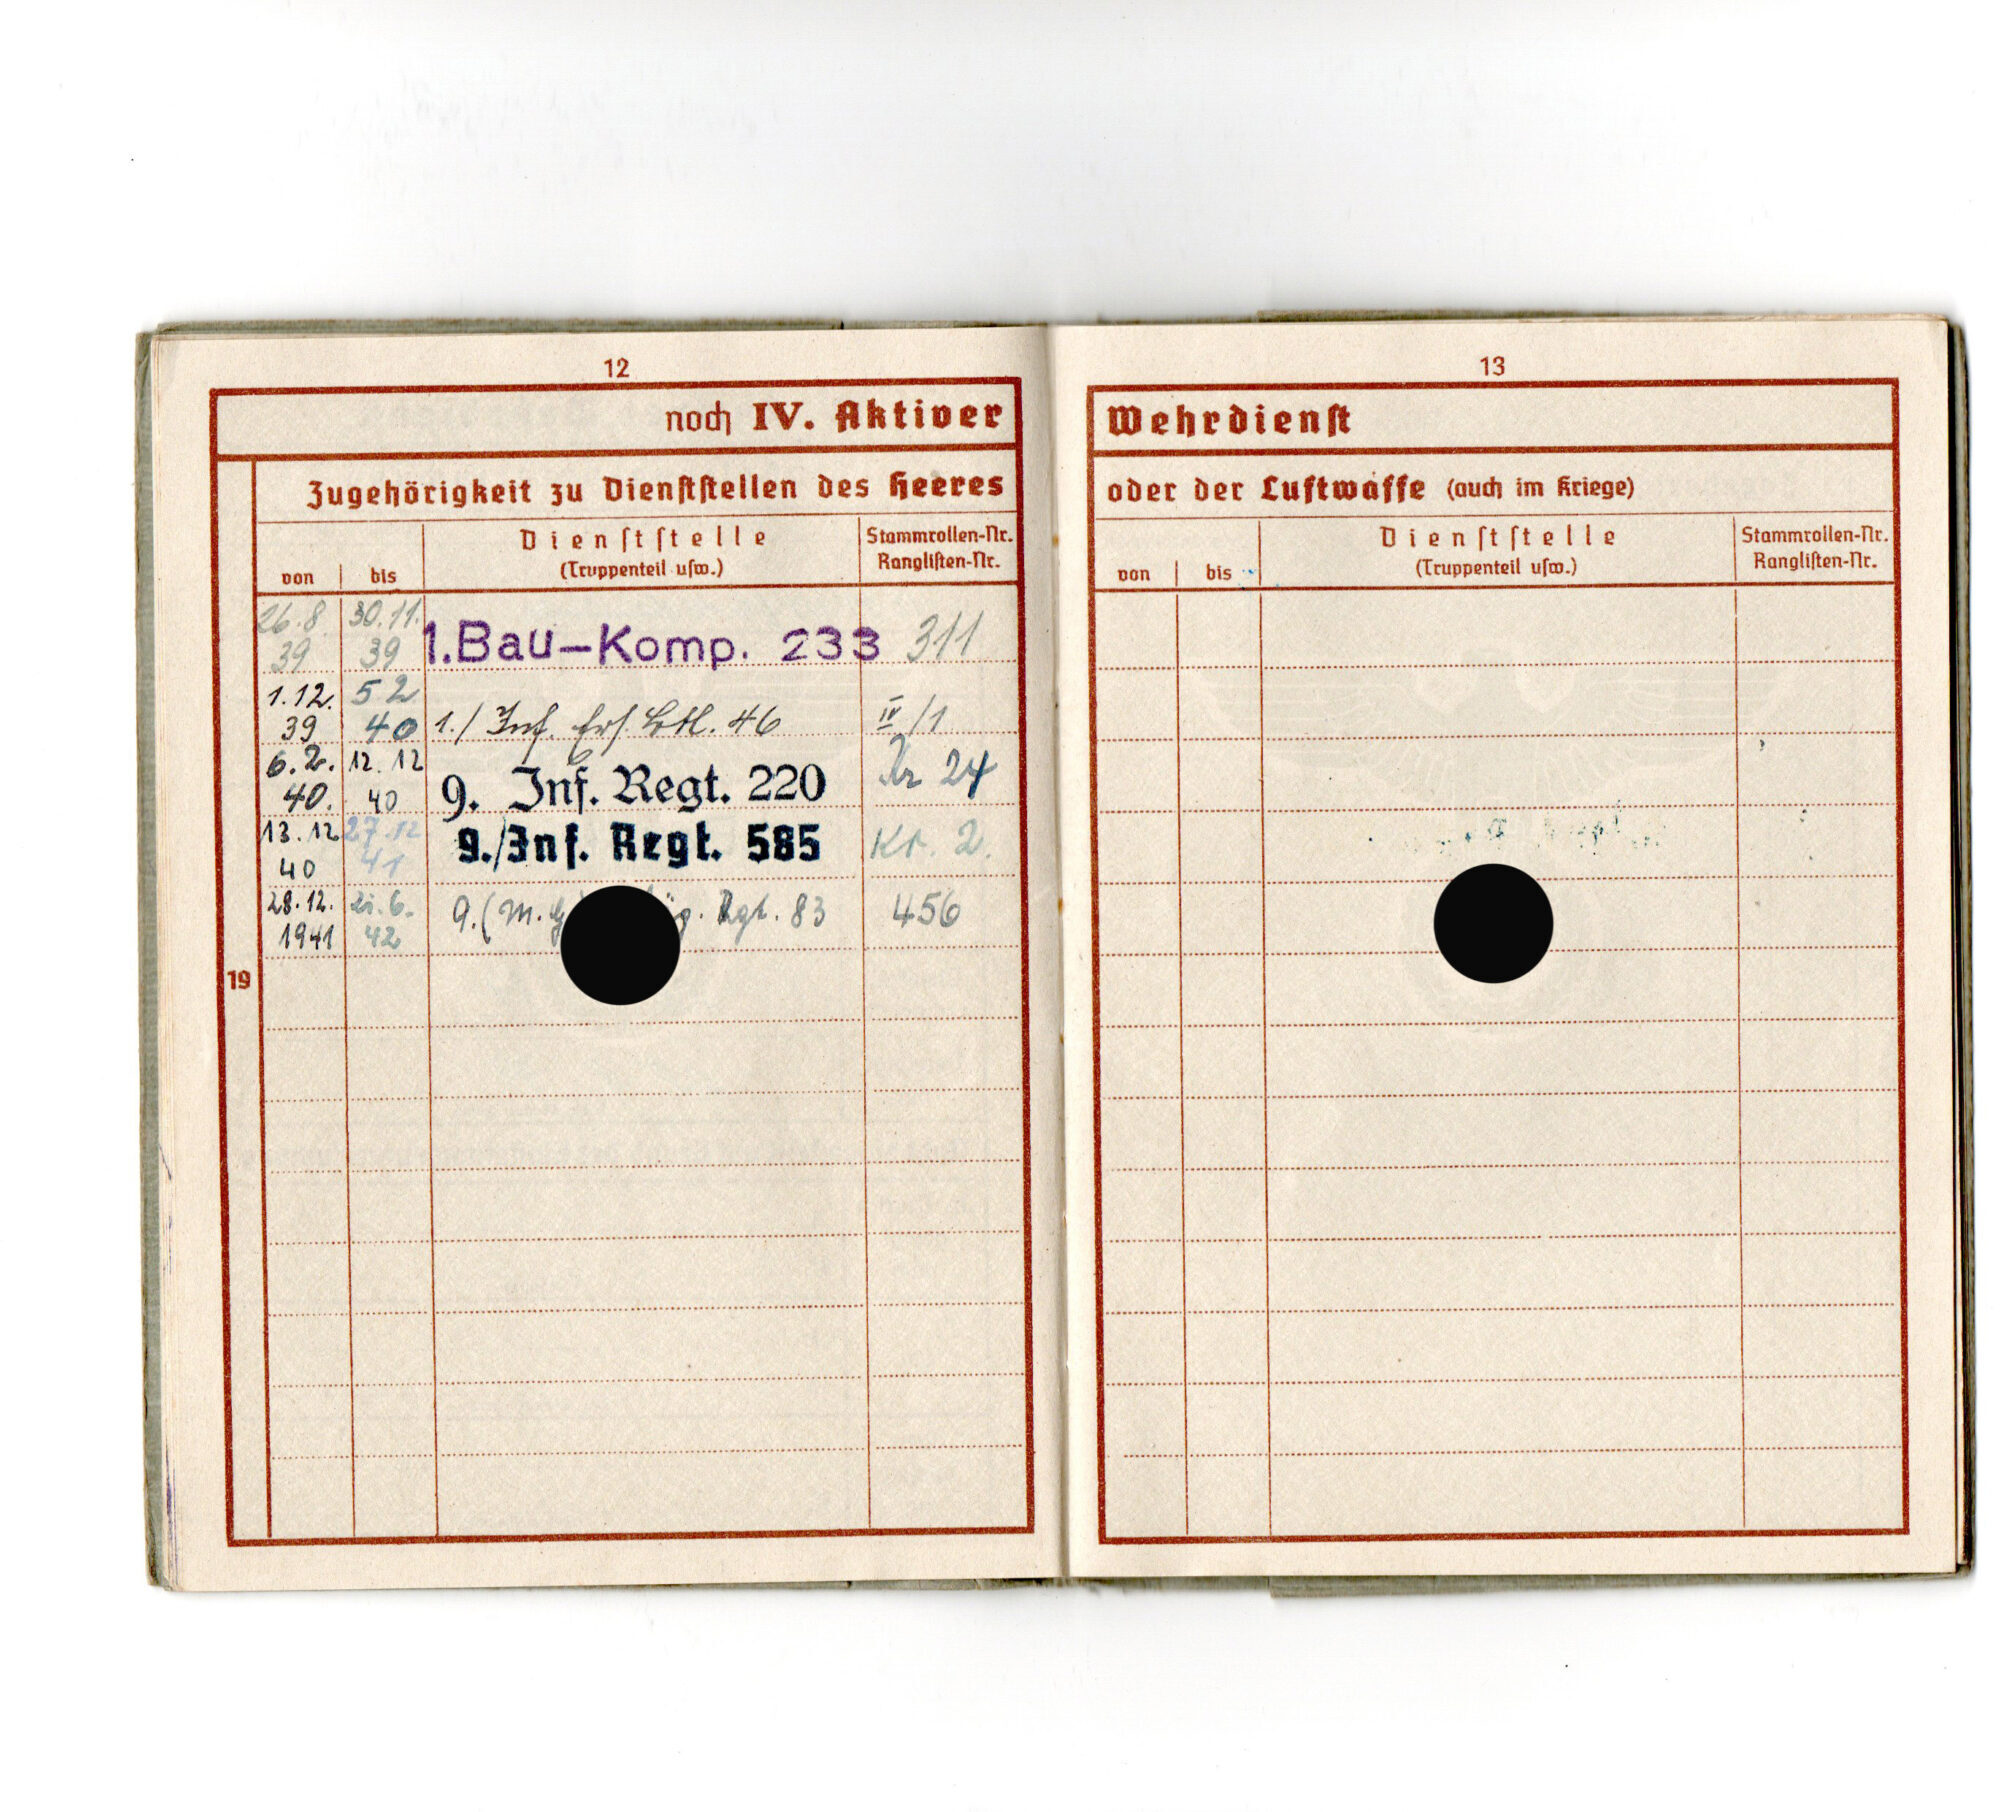 12
noch IV. Aktiver
Zugehörigkeit zu Dienststellen des Heeres
von bis Dienststelle (Truppenteil usw.) Stammrollen-Nr. Ranglisten-Nr.
26.8. 39 30.11. 39 1. Bau-Komp. 233 311
1.12. 39 5 2 40 1./ Inf. Ers. Btl. 46 IV/1
6.2. 40. 12.12 40 9. Inf. Regt. 220 Kr 24
13.12 40 27.12 41 9./Inf. Regt. 585 Kr. 2.
28.12. 1941 6. 42 9.(M.G Rgt. 83 456
19
13
Wehrdienst
oder der Luftwaffe (auch im Kriege)
von bis Dienststelle (Truppenteil usw.) Stammrollen-Nr. Ranglisten-Nr.